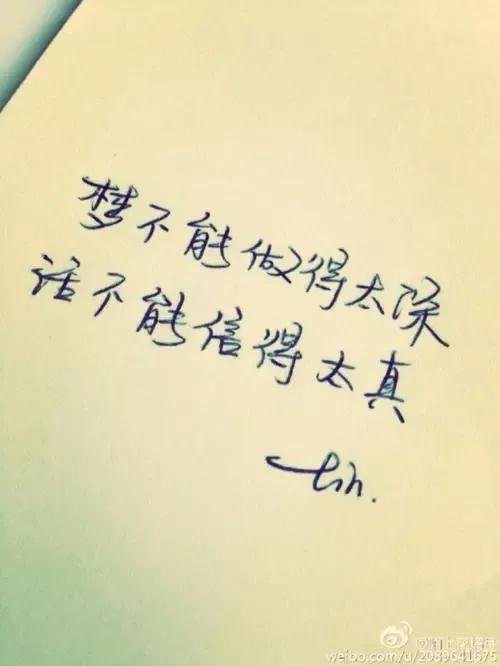 梦不能做得太深
话不能信得太真
weibo.com/u/2089641675